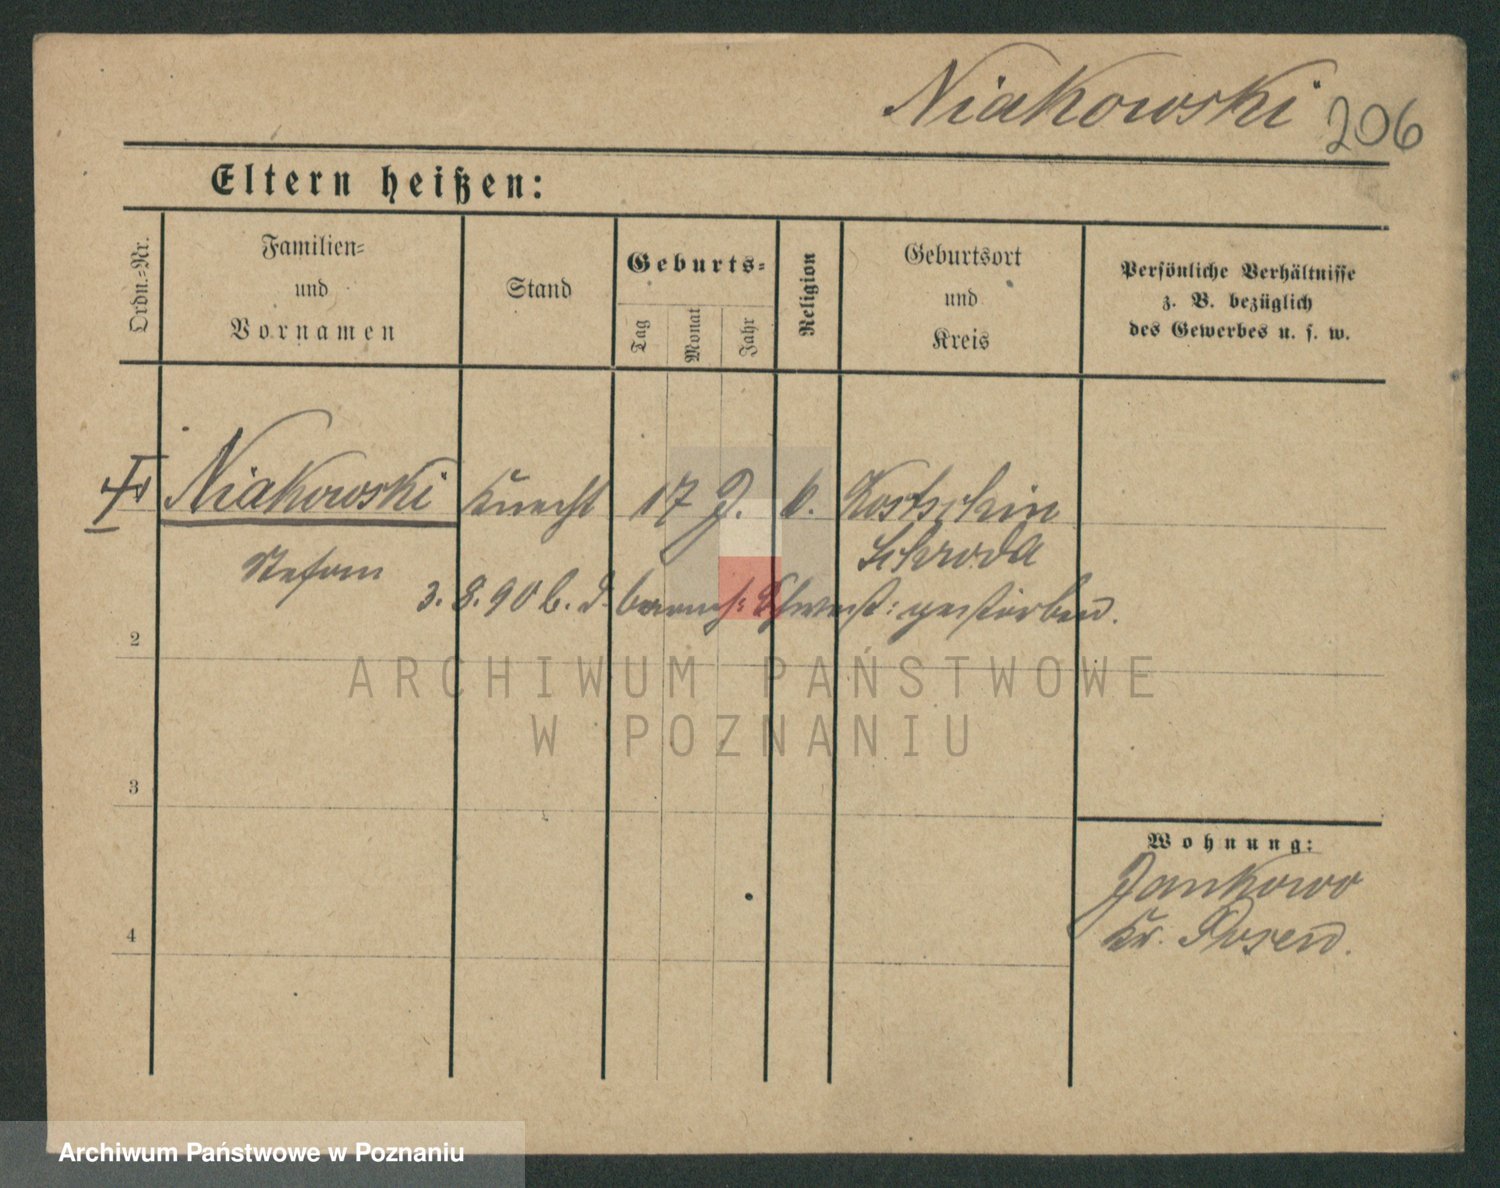 Niakowski 206
Eltern heißen:
Ordn.=Nr.
Familien=
und
Vornamen
Stand
Geburts=
Tag
Monat
Jahr
Religion
Geburtsort
und
Kreis
Persönliche Verhältnisse
z. B. bezüglich
des Gewerbes u. s. w.
Niakowski Knecht 17 J. k. Kostschin
Stefan Schroda
3. 8. 90 b. d. barmh: Schwest: gestorben.
2
3
4
Wohnung:
Jankowo
Kr. Posen.
ARCHIWUM PAŃSTWOWE
W POZNANIU
Archiwum Państwowe w Poznaniu